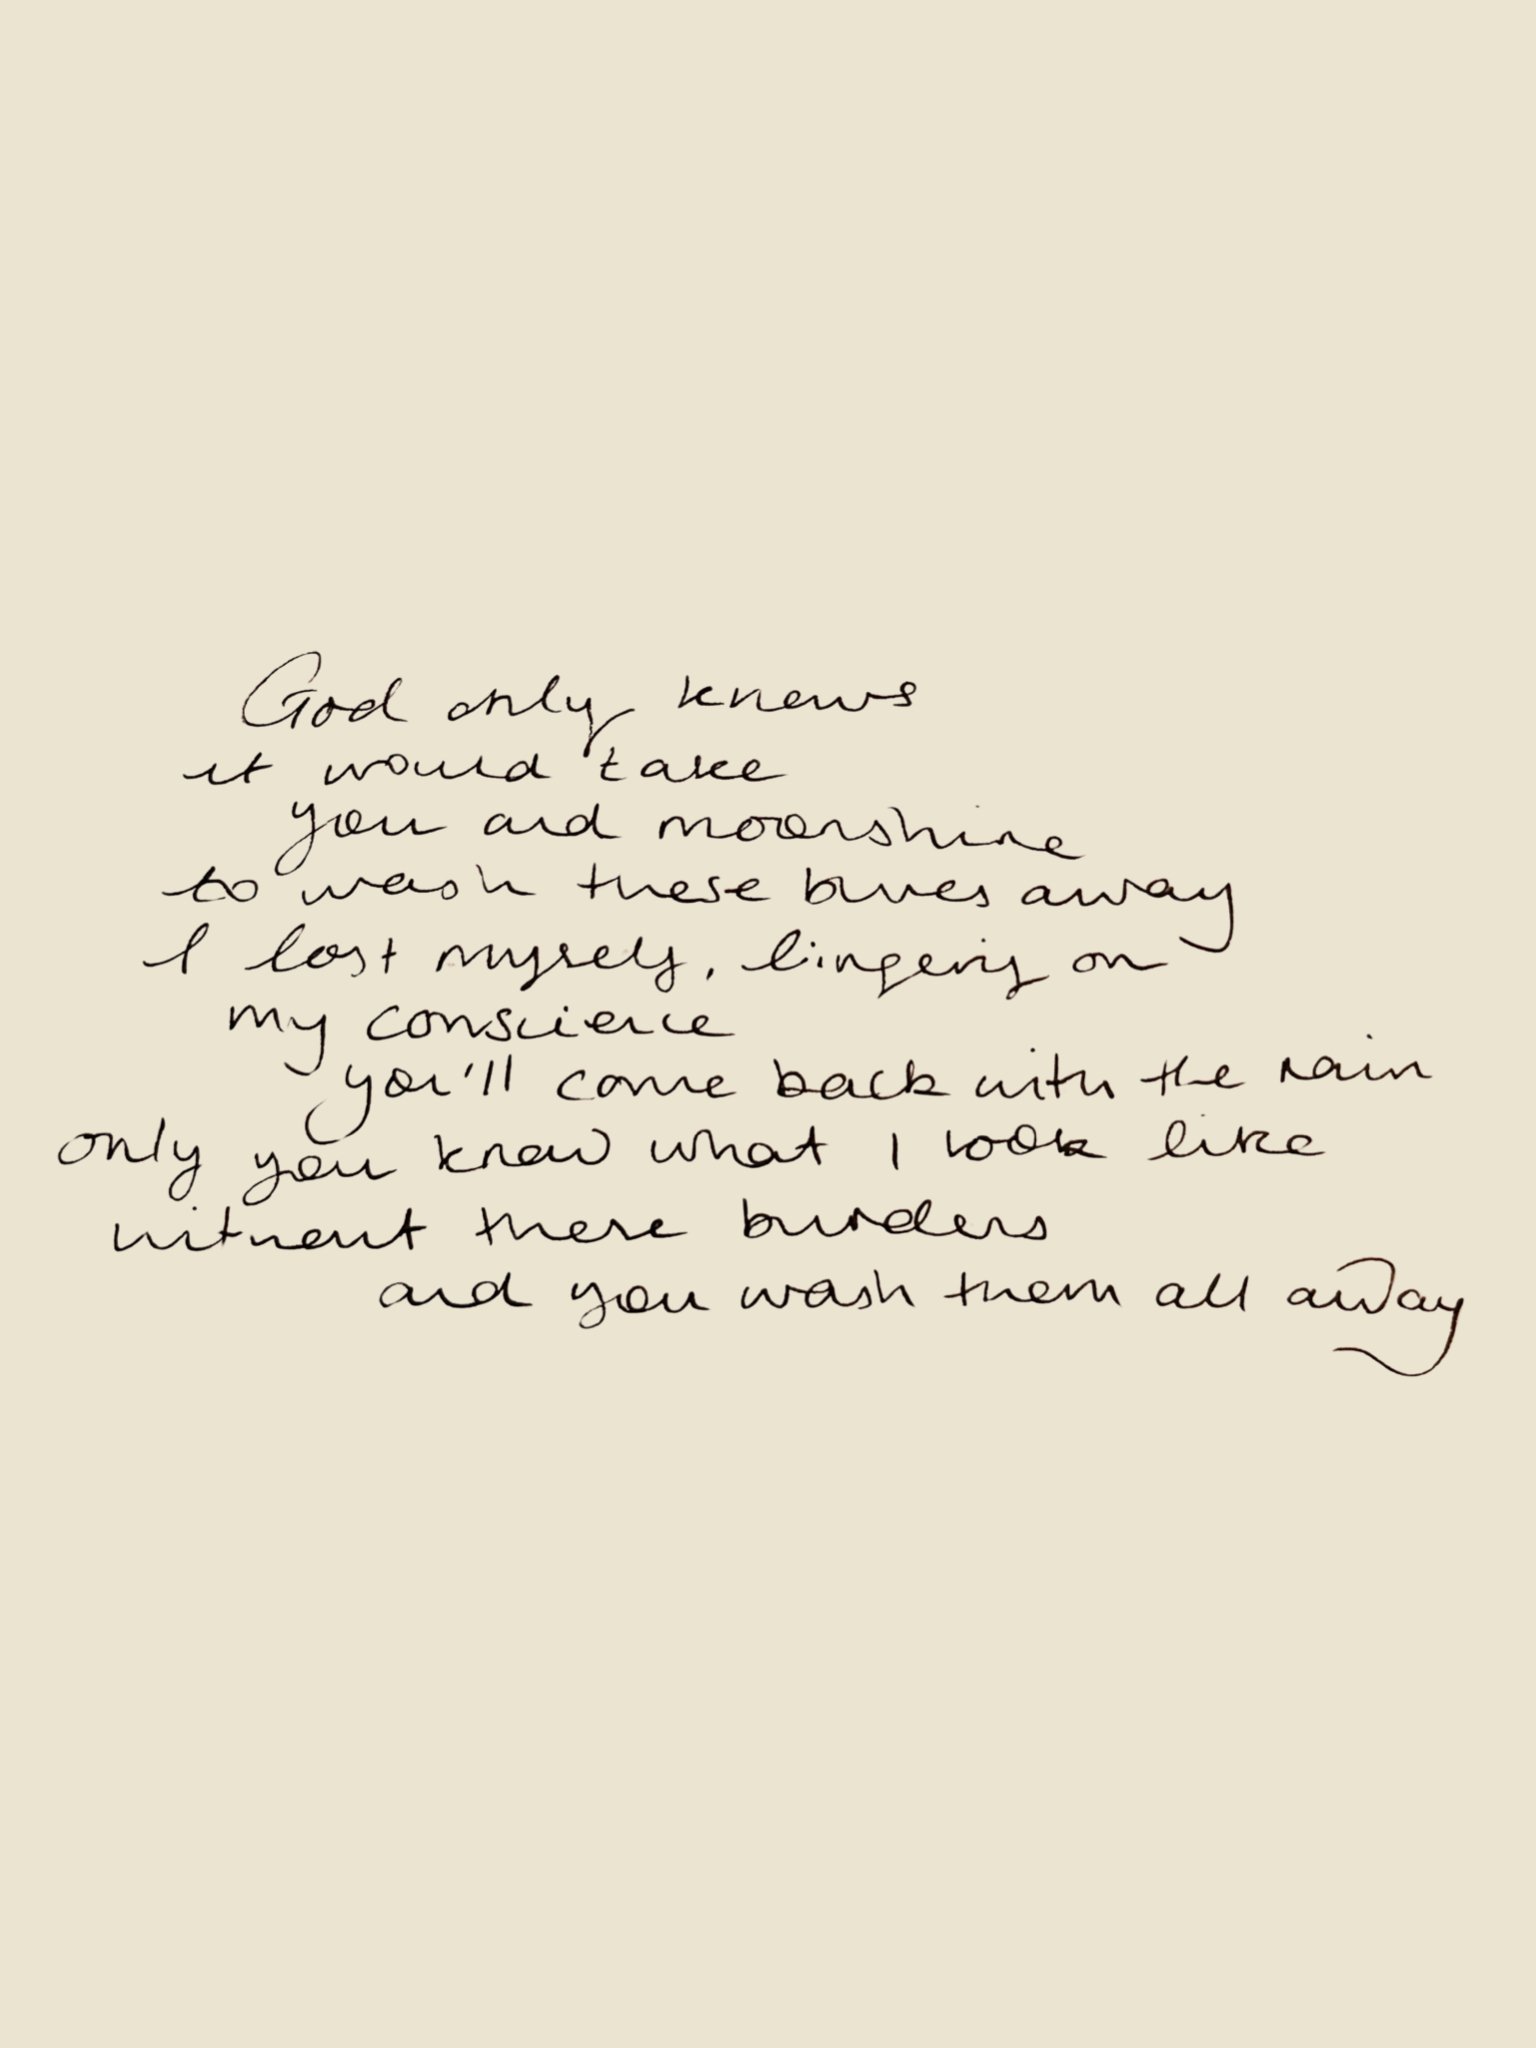 God only knows
it would take
you and moonshine
to wash these blues away
I lost myself, lingering on
my conscience
you'll come back with the rain
only you know what I look like
without these burdens
and you wash them all away